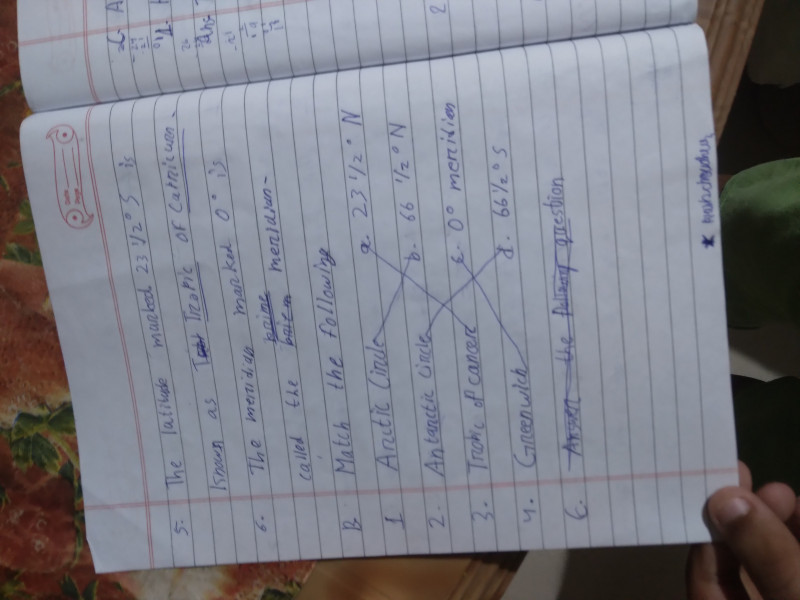 5. The latitude marked 23 1/2° S is
known as Tropic of Capricorn.
6. The meridian marked 0° is
called the prime meridian.
B. Match the following
1. Arctic Circle a. 23 1/2° N
2. Antarctic Circle b. 66 1/2° N
3. Tropic of cancer c. 0° meridian
4. Greenwich d. 66 1/2° S
C. Answer the following question